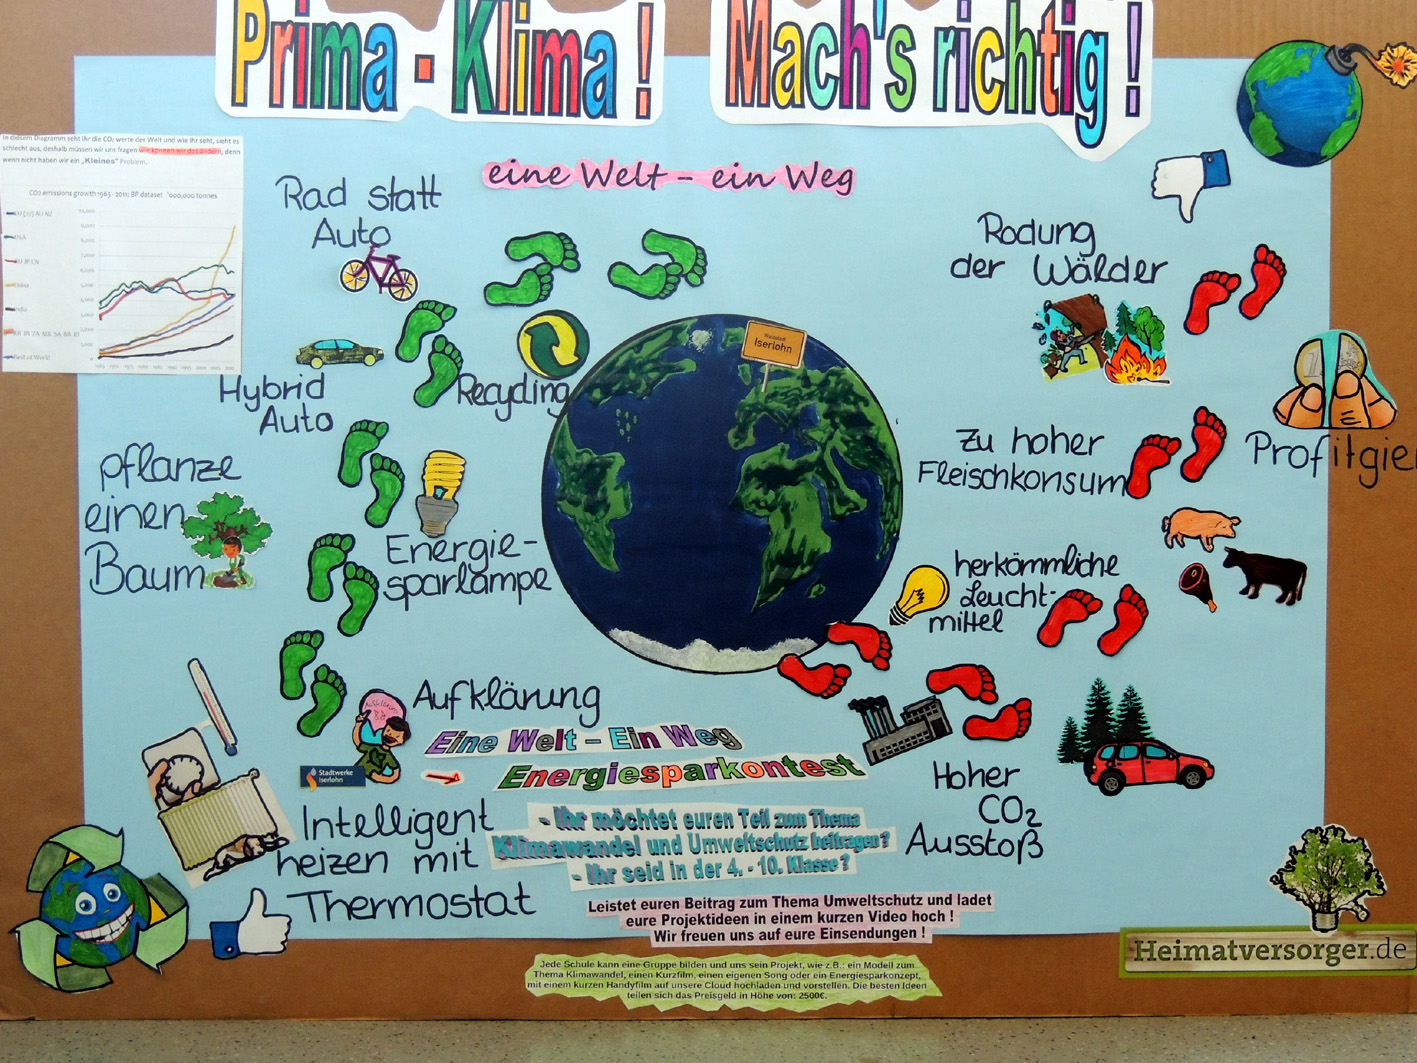 Prima - Klima !
Mach's richtig !
In diesem Diagramm seht ihr die CO₂ werte der Welt und wie ihr seht, sieht es
schlecht aus, deshalb müssen wir uns fragen wie können wir das ändern, denn
wenn nicht haben wir ein „Kleines" Problem.
CO2 emissions growth 1965 - 2011: BP dataset '000,000 tonnes
USA
China
India
Rest of World
eine Welt - ein Weg
Rad statt
Auto
Hybrid
Auto
Recycling
pflanze
einen
Baum
Energie-
sparlampe
Aufklärung
Stadtwerke
Iserlohn
Intelligent
heizen mit
Thermostat
Iserlohn
Rodung
der Wälder
Profitgier
Zu hoher
Fleischkonsum
herkömmliche
Leucht-
mittel
Hoher
CO2
Ausstoß
Eine Welt - Ein Weg
Energiesparkontest
- Ihr möchtet euren Teil zum Thema
Klimawandel und Umweltschutz beitragen?
- Ihr seid in der 4. - 10. Klasse?
Leistet euren Beitrag zum Thema Umweltschutz und ladet
eure Projektideen in einem kurzen Video hoch !
Wir freuen uns auf eure Einsendungen !
Jede Schule kann eine Gruppe bilden und uns sein Projekt, wie z.B.: ein Modell zum
Thema Klimawandel, einen Kurzfilm, einen eigenen Song oder ein Energiesparkonzept,
mit einem kurzen Handyfilm auf unsere Cloud hochladen und vorstellen. Die besten Ideen
teilen sich das Preisgeld in Höhe von: 2500€.
Heimatversorger.de